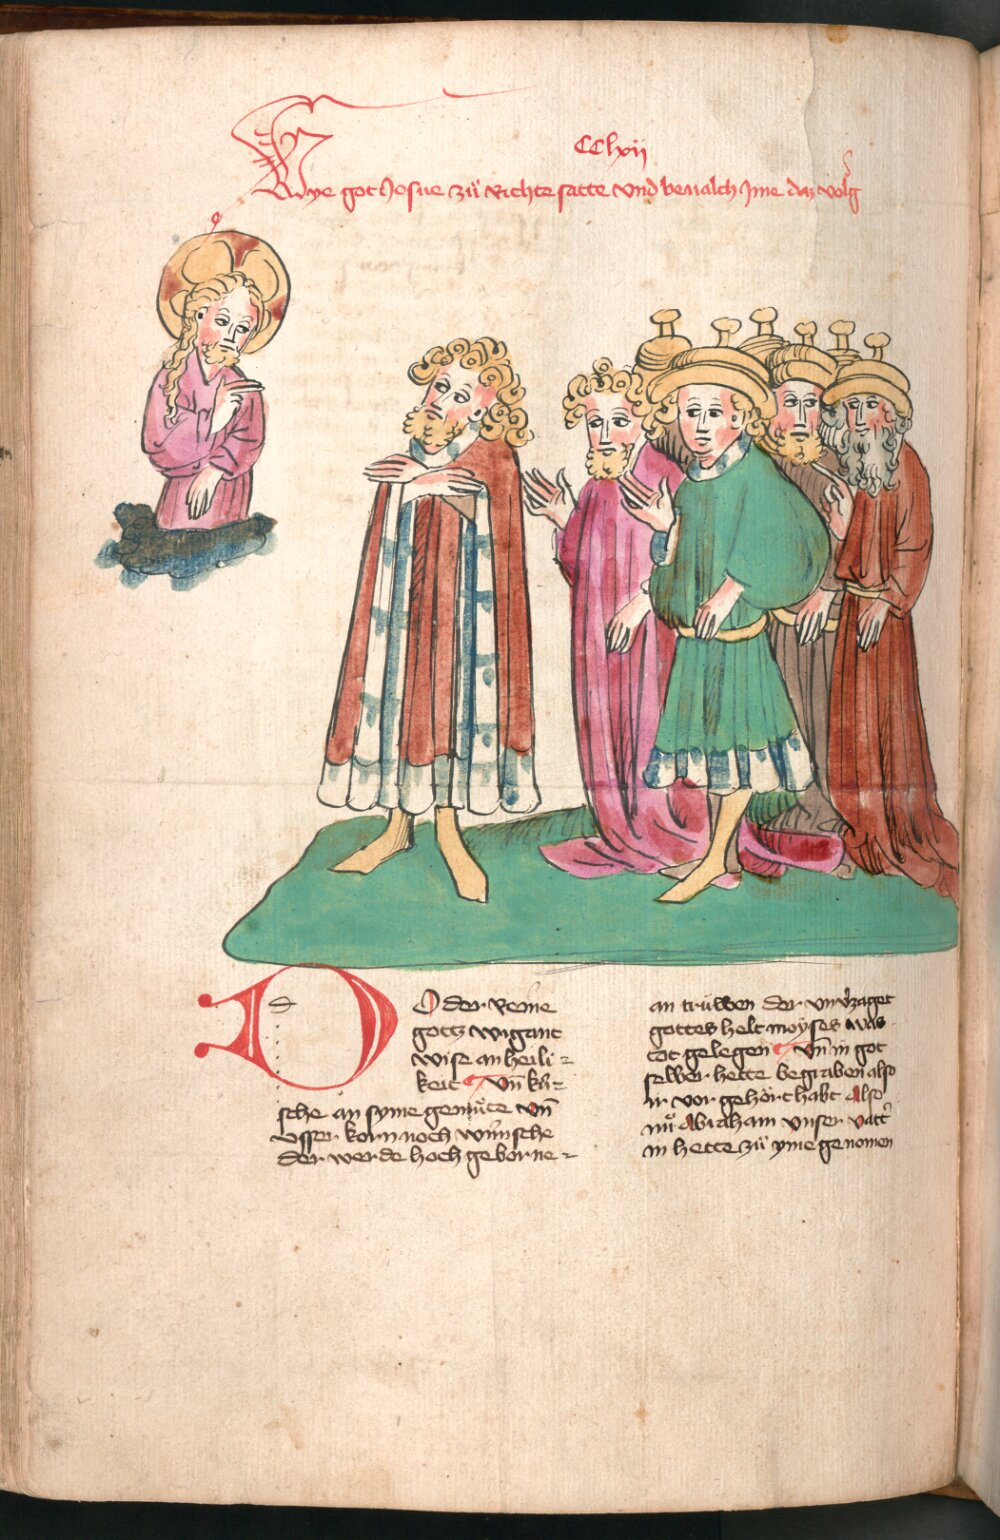 CClxii
Wye got Josue zü richte satte vnd beualch Jme daz volg
DO der reine
gottz wigant
wise an heili-
keit vn̄ kü-
sche an syme gemüte vn̄
vsser korn noch wūnsche
der werde hoch geborne-
an trüwen der vnv̓zaget
gottes helt moÿses was
tot gelegen vn̄ in got
selber hette begraben also
ir vor gehört habt Also
nü Abraham vnser vatt̓
in hette zü yme genomen